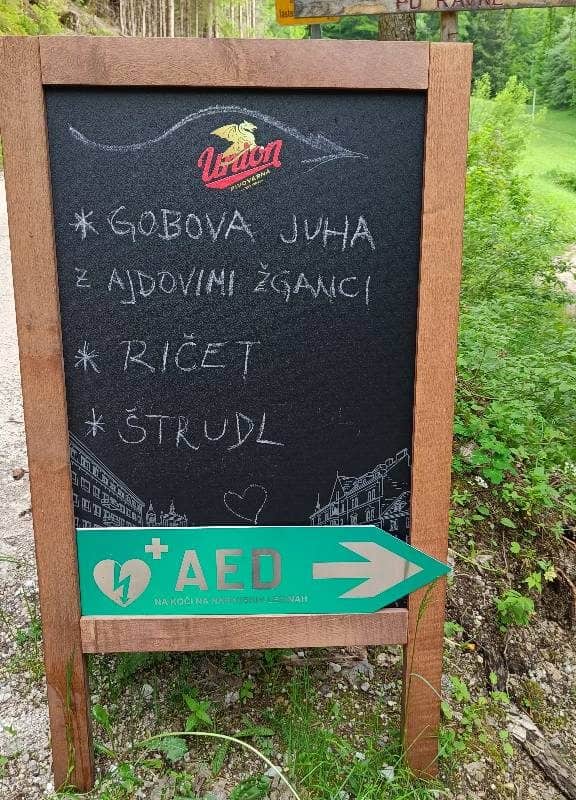 PO RAVNE
Union
PIVOVARNA
* GOBOVA JUHA
Z AJDOVIMI ŽGANCI
* RIČET
* ŠTRUDL
AED
NA KOČI NA